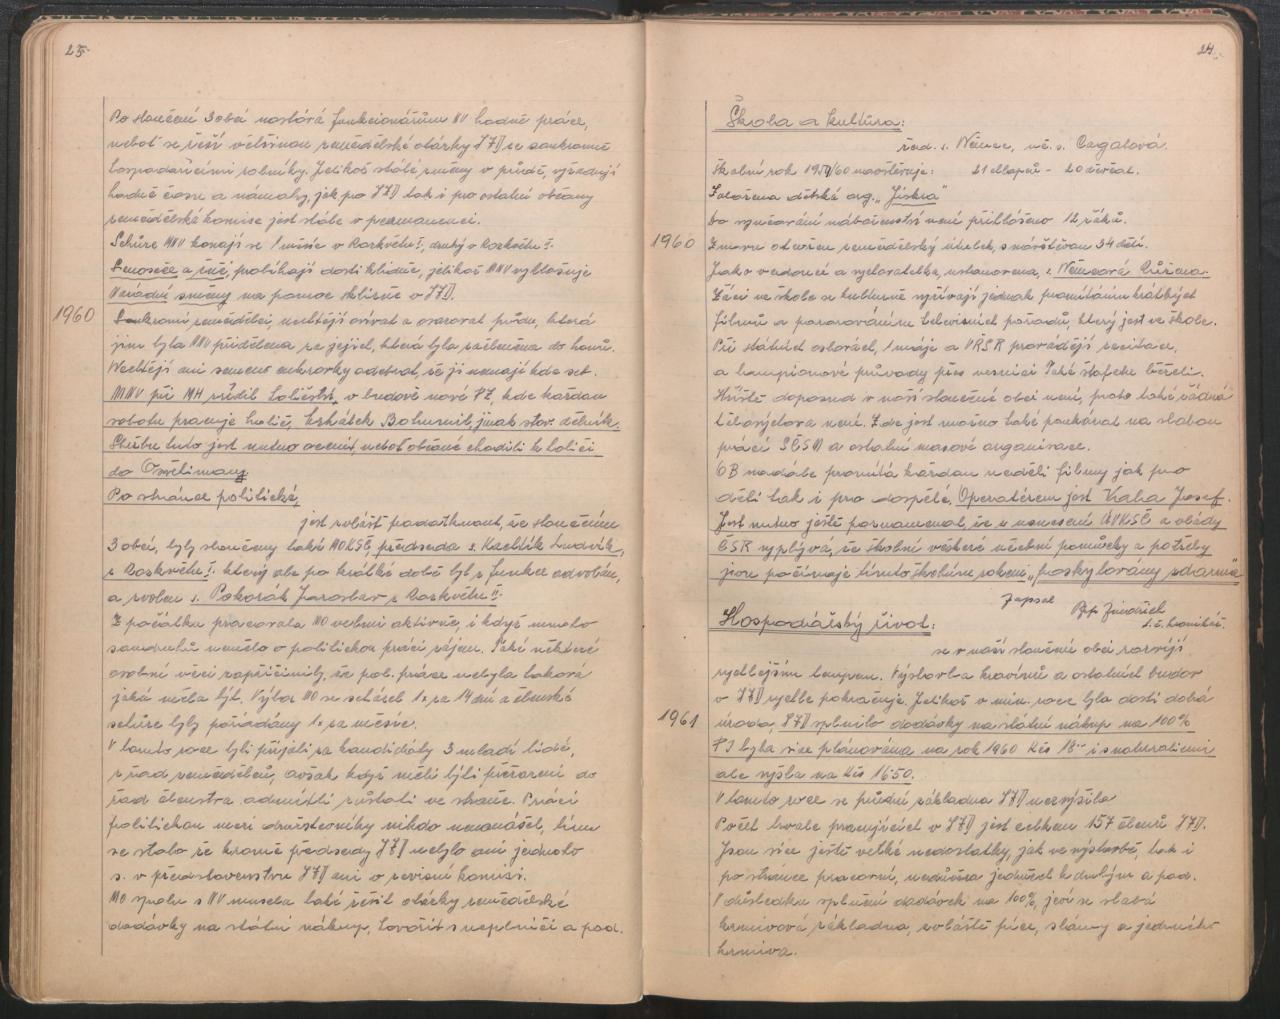 23.
Po sloučení 3 obcí nastává funkcionářům NV hodně práce,
neboť se řeší většinou zemědělské otázky JZD se soukromě
hospodařícími rolníky. Jelikož stálé změny v půdě, vyžadují
hodně času a námahy, jak po JZD tak i pro ostatní občany
zemědělská komise jest stále v permanenci.
Schůze MNV konají se 1 měsíc v Roskvětu I., druhý v Roskvětu II.
Senoseče a žně, probíhají dosti klidně, jelikož MNV vyhlašuje
Národní směny na pomoc sklizně v JZD.
1960
Soukromí zemědělci, nechtějí osívat a osazovat půdu, která
jim byla MNV přidělena za jejich, která byla začleněna do honů.
Nechtějí ani semeno cukrovky odebrat, že ji nemají kde set.
MNV při MH zřídil holičství, v budově nové PZ, kde každou
sobotu pracuje holič, Bohumil, jinak stav. dělník.
Službu tuto jest nutno ocenit, neboť občané chodili k holiči
do Osvětiman
Po stránce politické,
jest zvlášť podotknout, že sloučením
3 obcí, byly sloučeny také MOKSČ, předseda s. Kachlík Ludvík,
z Roskvětu I. který ale po krátké době byl z funkce odvolán,
a zvolen s. Pokorák Jaroslav z Roskvětu II.
Z počátku pracovala MO velmi aktivně, i když mnoho
soudruhů nemělo o politickou práci zájem. Také některé
osobní věci zapříčinily, že pol. práce nebyla taková
jaká měla být. Výbor MO se scházel 1x za 14 dní a členské
schůze byly pořádány 1x za měsíc.
V tomto roce byli přijati za kandidáty 3 mladí lidé,
z řad zemědělců, avšak když měli býti přeřazeni do
řad členstva odmítli zůstati ve straně. Práci
politickou mezi družstevníky nikdo nevnášel, tím
se stalo že kromě předsedy JZD nebylo ani jednoho
s. v představenstvu JZD ani v revisní komisi.
MO spolu s NV musela také řešit otázky zemědělské
dodávky na státní nákup, hovořit s neplniči a pod.
24.
Škola a kultura:
řed. s. Němec, uč. s. Cagalová.
Školní rok 1959/60 navštěvuje: 21 chlapců - 20 děvčat.
Založena dětská org. „Jiskra“
Do vyučování náboženství není přihlášeno 12 žáků.
1960
Znovu otevřen zemědělský útulek, s návštěvou 34 dětí.
Jako vedoucí a vychovatelka, ustanovena, s. Němcová Růžena.
Žáci ve škole se kulturně vyžívají jednak promítáním krátkých
filmů a pozorováním televisních pořadů, který jest ve škole.
Při státních oslavách, 1 máje a VŘSR provádějí recitace,
a lampionové průvody přes vesnici Také štafetu běželi.
Hřiště doposud v naší sloučené obci není, proto také žádná
tělovýchova není. Zde jest možno také poukázat na slabou
práci SČSM a ostatní masové organisace.
OB nadále promítá každou neděli filmy jak pro
děti tak i pro dospělé. Operatérem jest Kaha Josef.
Jest nutno ještě poznamenat, že z usnesení ÚVKSČ a vlády
ČSR vyplývá, že školní veškeré učební pomůcky a potřeby
jsou počínaje tímto školním rokem „poskytovány zdarma“
Zapsal Jindřich
t.č. kronikář.
Hospodářský život:
se v naší sloučené obci rozvíjí
rychlejším tempem. Výstavba kravínů a ostatních budov
v JZD rychle pokračuje. Jelikož v min. roce byla dosti dobrá
1961
úroda, JZD splnilo dodávky na státní nákup na 100%
PJ byla sice plánována na rok 1960 Kčs 18.- i s naturaliemi
ale vyšla na Kčs 16.50.
V tomto roce se půdní základna JZD nezvýšila
Počet trvale pracujících v JZD jest celkem 157 členů JZD.
Jsou sice ještě velké nedostatky, jak ve výstavbě, tak i
po stránce pracovní, nedůvěra jedněch k druhým a pod.
V důsledku splnění dodávek na 100%, jeví se slabá
krmivová základna, zvláště píce, slámy a jadrného
krmiva.